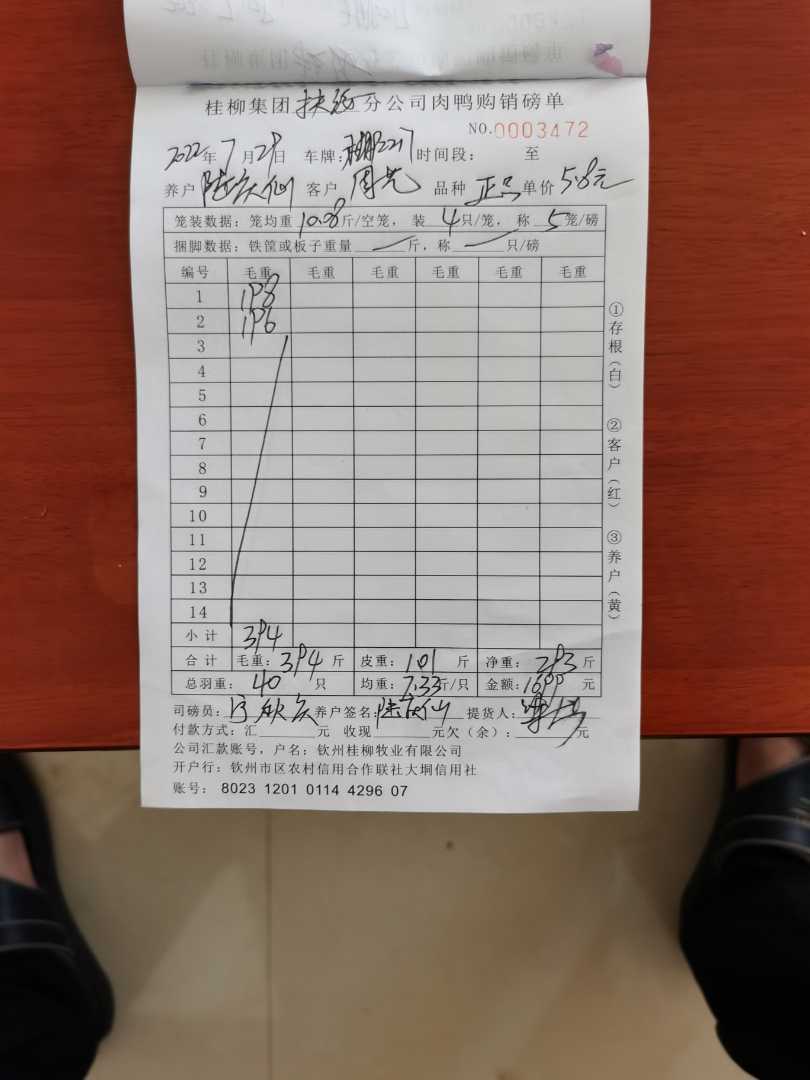 桂柳集团扶绥分公司肉鸭购销磅单
NO.0003472
2022年7月29日 车牌: 时间段: 至
养户 客户 周光 品种 正品 单价5.8元
笼装数据:笼均重10.08斤/空笼,装4只/笼,称5笼/磅
捆脚数据:铁筐或板子重量 斤,称 只/磅
编号 毛重 毛重 毛重 毛重 毛重 毛重
1 198
2 196
3
4
5
6
7
8
9
10
11
12
13
14
小计 394
合计 毛重:394斤 皮重:101斤 净重:293斤
总羽重:40只 均重:7.33斤/只 金额:1699元
司磅员: 养户签名: 提货人:
付款方式:汇 元 收现 元欠(余): 元
公司汇款账号,户名:钦州桂柳牧业有限公司
开户行:钦州市区农村信用合作联社大垌信用社
账号:8023 1201 0114 4296 07
①存根(白) ②客户(红) ③养户(黄)